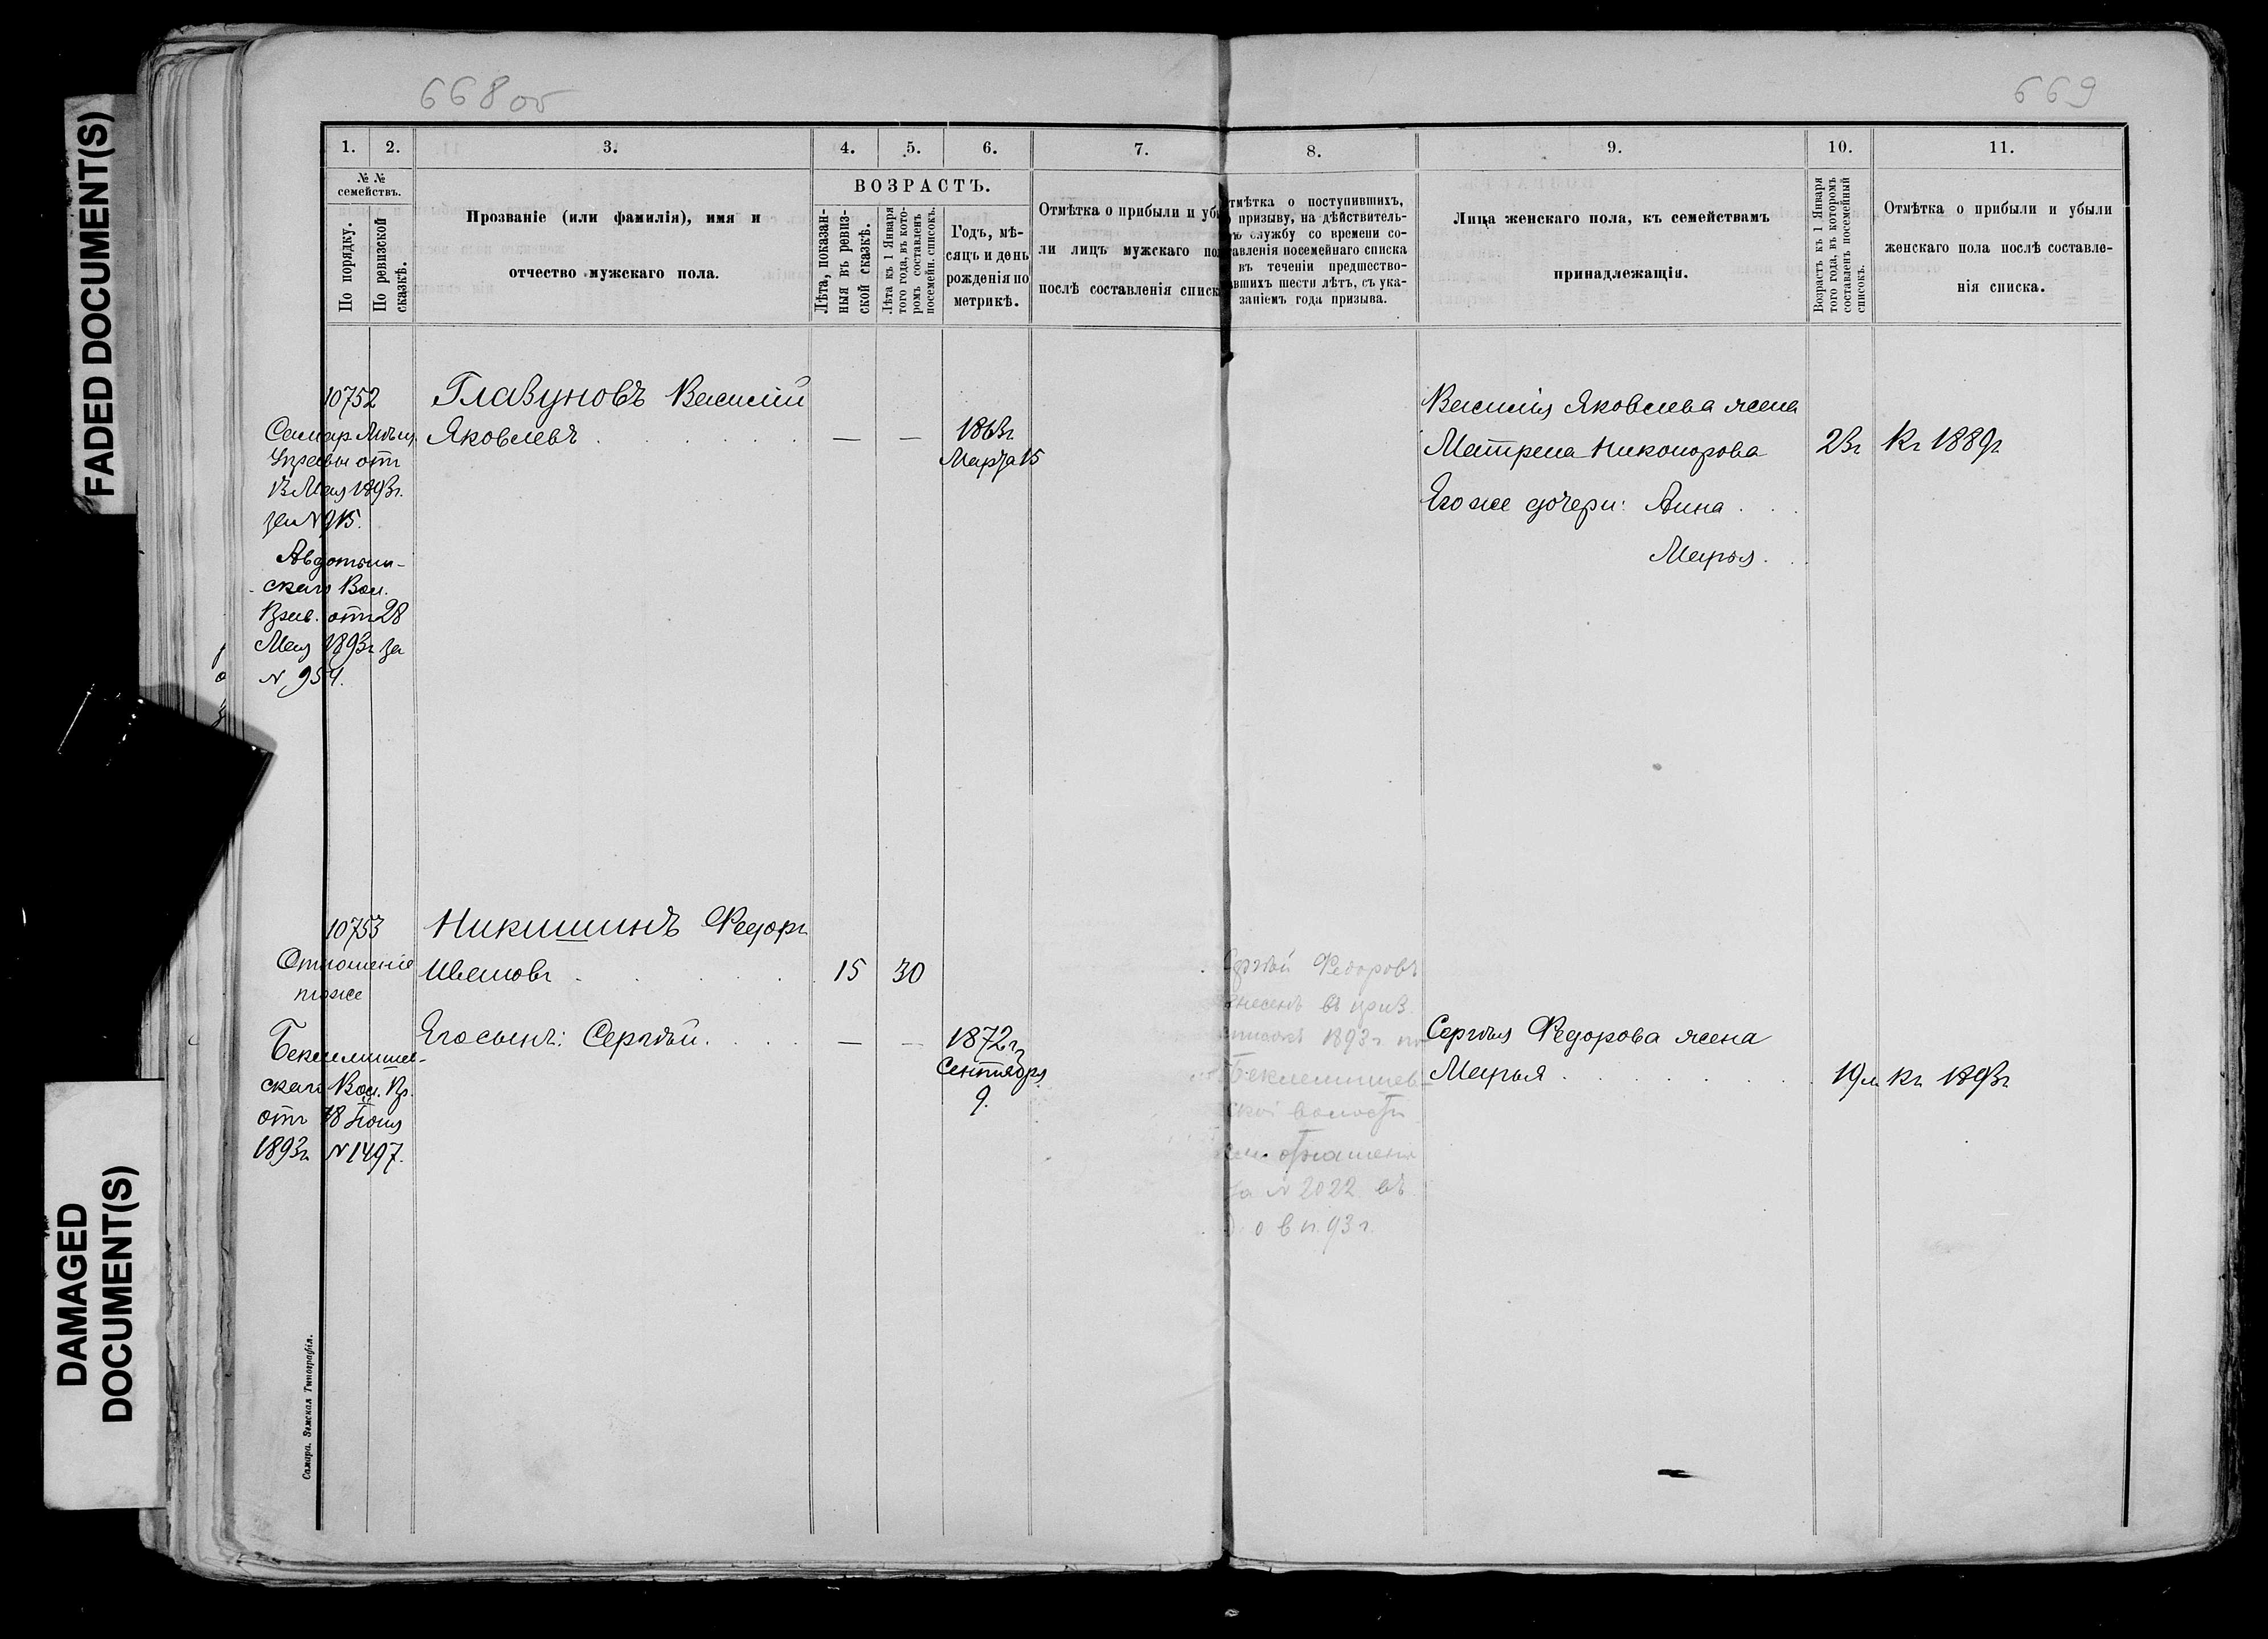 FADED DOCUMENT(S)
DAMAGED
DOCUMENT(S)
668 об
669
1.
2.
3.
4.
5.
6.
7.
8.
9.
10.
11.
№ №
семействъ.
По порядку.
По ревизской
сказкѣ.
Прозваніе (или фамилія), имя и
отчество мужскаго пола.
ВОЗРАСТЪ.
Лѣта, показан-
ныя въ ревиз-
ской сказкѣ.
Лѣта къ 1 Января
того года, въ кото-
ромъ составленъ
посемейн. списокъ.
Годъ, мѣ-
сяцъ и день
рожденія по
метрикѣ.
Отмѣтка о прибыли и убы
ли лицъ мужскаго пол
послѣ составленія списк
тмѣтка о поступившихъ,
призыву, на дѣйствитель-
ю службу со времени со-
тавленія посемейнаго списка
въ теченіи предшество-
авшихъ шести лѣтъ, съ ука-
заніемъ года призыва.
Лица женскаго пола, къ семействамъ
принадлежащія.
Возрастъ къ 1 Января
того года, въ которомъ
составленъ посемейный
списокъ.
Отмѣтка о прибыли и убыли
женскаго пола послѣ составле-
нія списка.
10752
Самар. Мѣщ.
Управы отъ
13 Мая 1893г.
за № 915.
Авдотьин-
скаго Вол.
Прав. отъ 28
Мая 1893г за
№ 954.
Глазуновъ Василій
Яковлевъ
— —
1863г
Марта 15
Василія Яковлева жена
Матрена Никонорова
23г Къ 1889г
Его же дочери: Анна
Марья
10753
Отношеніе
тоже
Беклемишев-
скаго Вол. Пр.
отъ 18 Іюня
1893г № 1497.
Никишинъ Федоръ
Ивановъ
15 30
Его сынъ: Сергѣй
— —
1872г
Сентября
9.
Сергѣй Федоровъ
внесенъ въ приз.
1893 г. по
Беклемишев-
ской волости
отношеніе
за № 2022 въ
о в п. 93 г.
Сергѣя Федорова жена
Марья
19л Къ 1893г
Самара. Земская Типографія.